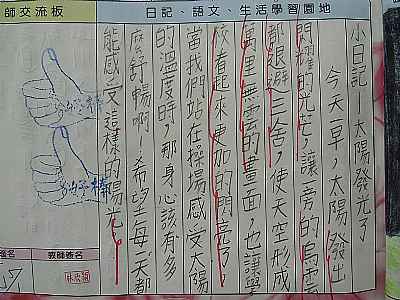 師交流板
日記、語文、生活學習園地
小日記—太陽發光了
今天一早,太陽發出
閃耀的光芒,讓一旁的烏雲
都退避三舍,使天空形成
萬里無雲的畫面,也讓學
校看起來更加的閃亮了,
當我們站在操場感受太陽
的溫度時,那身心該有多
麼舒暢啊!希望每一天都
能感受這樣的陽光。
好棒
好棒
教師簽名